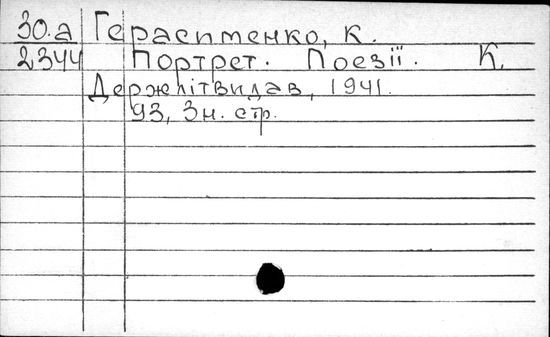 30.а Герасименко, К.
2344 Портрет. Поезії. К.
Держлітвидав, 1941.
93, 3н. стр.